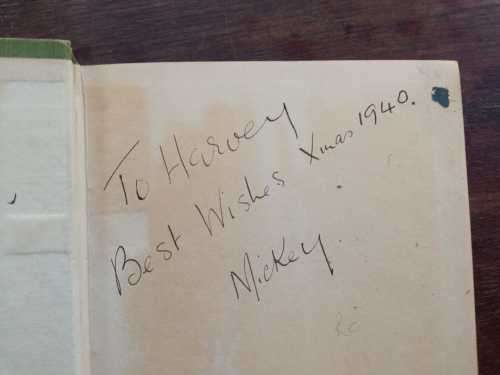 To Harvey
Best Wishes Xmas 1940.
Mickey.